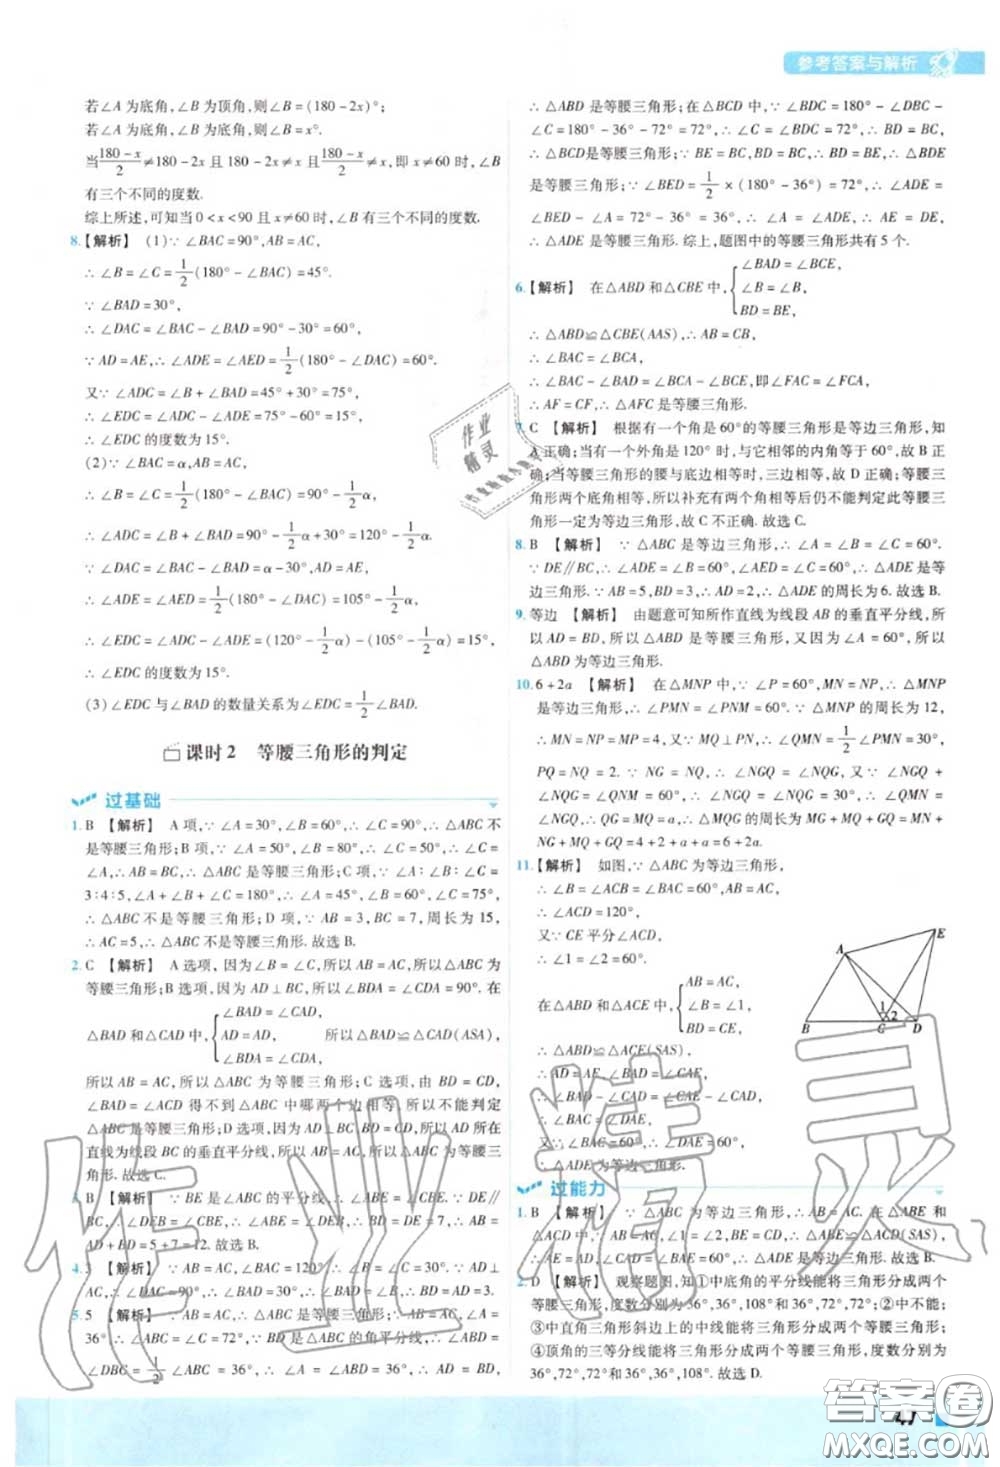 参考答案与解析
若∠A为底角,∠B为顶角,则∠B=(180-2x)°;
若∠A为底角,∠B为底角,则∠B=x°.
当\frac{180-x}{2}≠180-2x且180-2x≠x且\frac{180-x}{2}≠x,即x≠60时,∠B
有三个不同的度数.
综上所述,可知当0<x<90且x≠60时,∠B有三个不同的度数.
8.【解析】 (1)∵∠BAC=90°,AB=AC,
∴∠B=∠C=\frac{1}{2}(180°-∠BAC)=45°.
∵∠BAD=30°,
∴∠DAC=∠BAC-∠BAD=90°-30°=60°.
∵AD=AE,∴∠ADE=∠AED=\frac{1}{2}(180°-∠DAC)=60°.
又∵∠ADC=∠B+∠BAD=45°+30°=75°,
∴∠EDC=∠ADC-∠ADE=75°-60°=15°,
∴∠EDC的度数为15°.
(2)∵∠BAC=α,AB=AC,
∴∠B=∠C=\frac{1}{2}(180°-∠BAC)=90°-\frac{1}{2}α,
∴∠ADC=∠B+∠BAD=90°-\frac{1}{2}α+30°=120°-\frac{1}{2}α.
∵∠DAC=∠BAC-∠BAD=α-30°,AD=AE,
∴∠ADE=∠AED=\frac{1}{2}(180°-∠DAC)=105°-\frac{1}{2}α,
∴∠EDC=∠ADC-∠ADE=(120°-\frac{1}{2}α)-(105°-\frac{1}{2}α)=15°.
∴∠EDC的度数为15°.
(3)∠EDC与∠BAD的数量关系为∠EDC=\frac{1}{2}∠BAD.
课时2 等腰三角形的判定
过基础
1.B 【解析】 A项,∵∠A=30°,∠B=60°,∴∠C=90°,∴△ABC不
是等腰三角形;B项,∵∠A=50°,∠B=80°,∴∠C=50°,∴∠C=
∠A,∴AB=BC,∴△ABC是等腰三角形;C项,∵∠A:∠B:∠C=
3:4:5,∠A+∠B+∠C=180°,∴∠A=45°,∠B=60°,∠C=75°,
∴△ABC不是等腰三角形;D项,∵AB=3,BC=7,周长为15,
∴AC=5,∴△ABC不是等腰三角形.故选B.
2.C 【解析】 A选项,因为∠B=∠C,所以AB=AC,所以△ABC为
等腰三角形;B选项,因为AD⊥BC,所以∠BDA=∠CDA=90°.在
△BAD和△CAD中,{∠BAD=∠CAD, AD=AD, ∠BDA=∠CDA, 所以△BAD≌△CAD(ASA),
所以AB=AC,所以△ABC为等腰三角形;C选项,由BD=CD,
∠BAD=∠ACD得不到△ABC中哪两个边相等,所以不能判定
△ABC为等腰三角形;D选项,因为AD⊥BC,BD=CD,所以AD所在
直线为线段BC的垂直平分线,所以AB=AC,所以△ABC为等腰三
角形.故选C.
3.B 【解析】 ∵BE是∠ABC的平分线,∴∠ABE=∠CBE.∵DE∥
BC,∴∠DEB=∠CBE,∴∠ABE=∠DEB,∴BD=DE=7,∴AB=
AD+BD=5+7=12.故选B.
4.3
5.5 【解析】 ∵AB=AC,∴△ABC是等腰三角形;∵AB=AC,∠A=
36°,∴∠ABC=∠C=72°,∵BD是△ABC的角平分线,∴∠ABD=
∠DBC=\frac{1}{2}∠ABC=36°,∴∠A=∠ABD=36°,∴AD=BD,
∴△ABD是等腰三角形;在△BCD中,∵∠BDC=180°-∠DBC-
∠C=180°-36°-72°=72°,∴∠C=∠BDC=72°,∴BD=BC,
∴△BCD是等腰三角形;∵BE=BC,BD=BC,∴BD=BE,∴△BDE
是等腰三角形;∵∠BED=\frac{1}{2}×(180°-36°)=72°,∴∠ADE=
∠BED-∠A=72°-36°=36°,∴∠A=∠ADE,∴AE=DE,
∴△ADE是等腰三角形.综上,题图中的等腰三角形共有5个.
6.【解析】 在△ABD和△CBE中,{∠BAD=∠BCE, ∠B=∠B, BD=BE,
∴△ABD≌△CBE(AAS),∴AB=CB,
∴∠BAC=∠BCA,
∴∠BAC-∠BAD=∠BCA-∠BCE,即∠FAC=∠FCA,
∴AF=CF,∴△AFC是等腰三角形.
7.C 【解析】 根据有一个角是60°的等腰三角形是等边三角形,知
A正确;当有一个外角是120°时,与它相邻的内角等于60°,故B正
确;当等腰三角形的腰与底边相等时,三边相等,故D正确;等腰三
角形两个底角相等,所以补充有两个角相等后仍不能判定此等腰三
角形一定为等边三角形,故C不正确.故选C.
8.B 【解析】 ∵△ABC是等边三角形,∴∠A=∠B=∠C=60°.
∵DE∥BC,∴∠ADE=∠B=60°,∠AED=∠C=60°,∴△ADE是等
边三角形.∵AB=5,BD=3,∴AD=2,∴△ADE的周长为6.故选B.
9.等边 【解析】 由题意可知所作直线为线段AB的垂直平分线,所
以AD=BD,所以△ABD是等腰三角形,又因为∠A=60°,所以
△ABD为等边三角形.
10.6+2a 【解析】 在△MNP中,∵∠P=60°,MN=NP,∴△MNP
是等边三角形,∴∠PMN=∠PNM=60°.∵△MNP的周长为12,
∴MN=NP=MP=4.又∵MQ⊥PN,∴∠QMN=\frac{1}{2}∠PMN=30°,
PQ=NQ=2.∵NG=NQ,∴∠NGQ=∠NQG.又∵∠NGQ+
∠NQG=∠PNM=60°,∴∠NGQ=∠NQG=30°,∴∠QMN=
∠NGQ,∴QG=MQ=a,∴△MGQ的周长为MG+MQ+QG=MN
+NG+MQ+QG=4+2+a+a=6+2a.
11.【解析】 如图,∵△ABC为等边三角形,
∴∠B=∠ACB=∠BAC=60°,AB=AC,
∴∠ACD=120°,
又∵CE平分∠ACD,
∴∠1=∠2=60°.
在△ABD和△ACE中,{AB=AC, ∠B=∠1, BD=CE,
∴△ABD≌△ACE(SAS),
∴AD=AE,∠BAD=∠CAE,
∴∠BAD-∠CAD=∠CAE-∠CAD,
∴∠BAC=∠DAE,
∵∠BAC=60°,∴∠DAE=60°,
∴△ADE为等边三角形.
A
E
B
C
D
1
2
过能力
1.B
2.D 【解析】 观察题图,知①中底角的平分线能将三角形分成两个
等腰三角形,度数分别为36°,36°,108°和36°,72°,72°;②中不能;
③中直角三角形斜边上的中线能将三角形分成两个等腰三角形;
④顶角的三等分线能将三角形分成两个等腰三角形,度数分别为
36°,72°,72°和36°,36°,108°.故选D.
作业精灵
答案圈
MXQE.COM